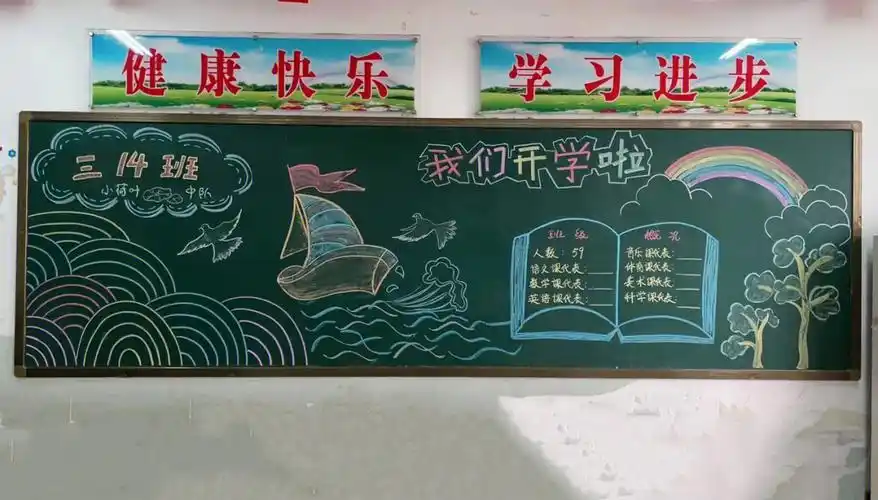 健康快乐
学习进步
三14班
小荷叶中队
我们开学啦
班级
人数：59
语文课代表：
数学课代表：
英语课代表：
概况
音乐课代表：
体育课代表：
美术课代表：
科学课代表：